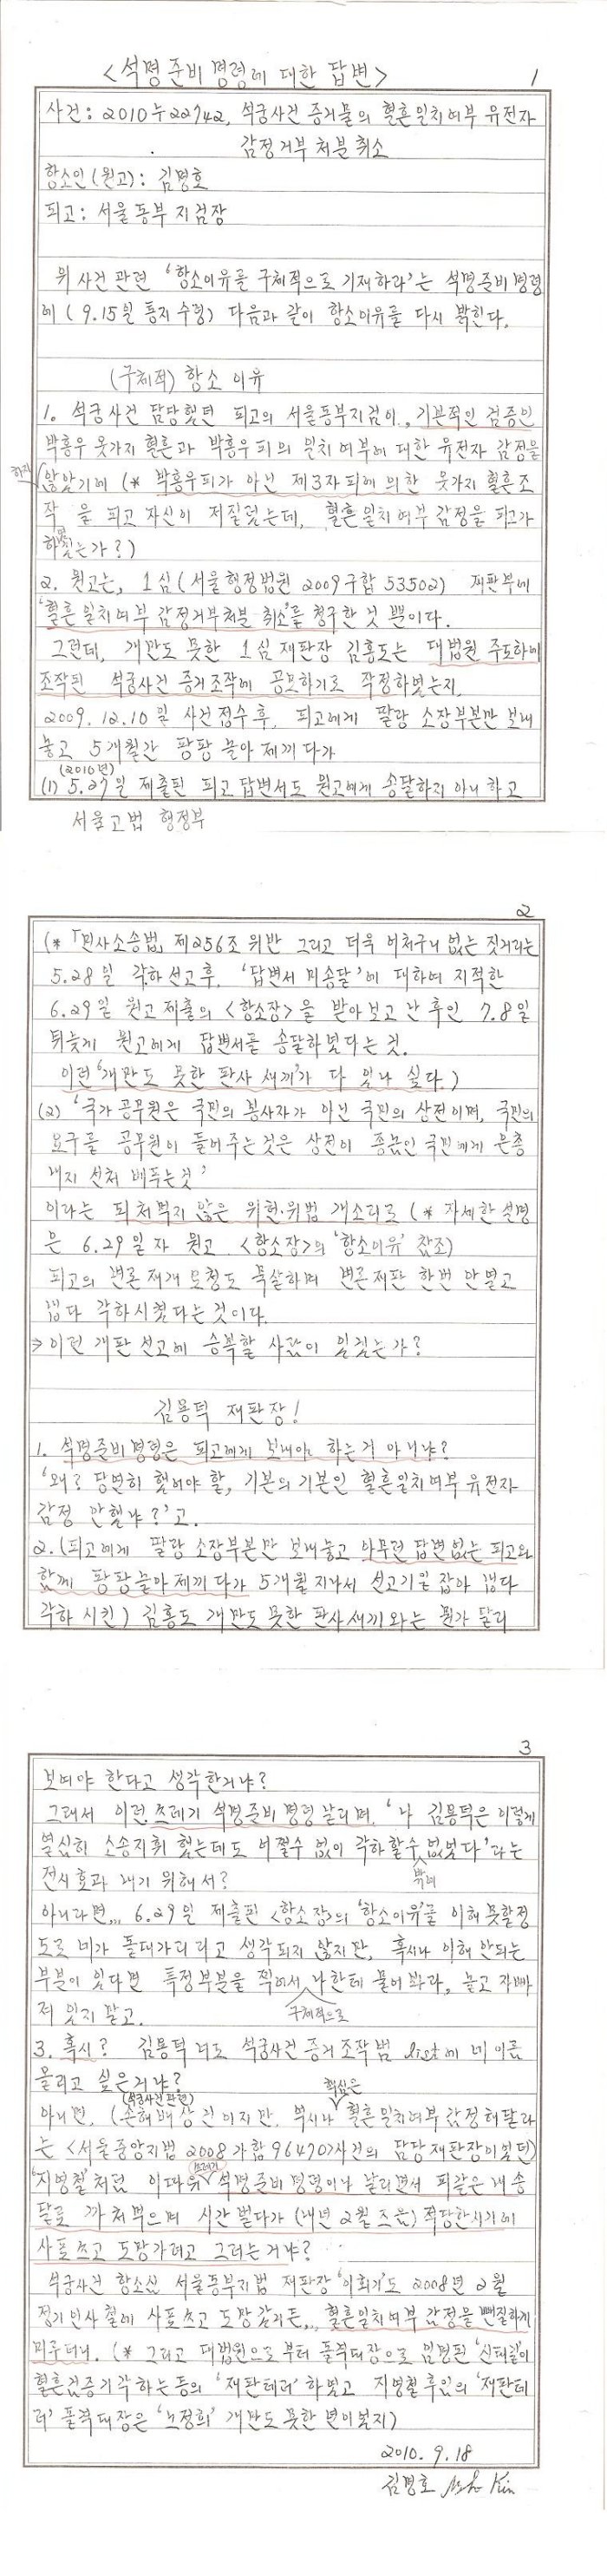 <석명준비명령에 대한 답변>
1
사건: 2010누22742, 석궁사건 증거물의 혈흔일치여부 유전자
감정거부 처분 취소
항소인(원고): 김명호
피고: 서울동부지검장
위 사건 관련 '항소이유를 구체적으로 기재하라'는 석명준비명령
에 (9.15일 통지 수령) 다음과 같이 항소이유를 다시 밝힌다.
(구체적) 항소 이유
1. 석궁사건 담당했던 피고의 서울동부지검이, 기본적인 검증인
박홍우 옷가지 혈흔과 박홍우 피의 일치여부에 대한 유전자 감정을
하지
않았기에 (* 박홍우피가 아닌 제3자피에 의한 옷가지 혈흔조
작을 피고 자신이 저질렀는데, 혈흔일치여부 감정을 피고가
하겠는가?)
2. 원고는, 1심(서울행정법원 2009구합53502) 재판부에
'혈흔일치여부 감정거부처분 취소'를 청구한 것 뿐이다.
그런데, 개만도 못한 1심 재판장 김홍도는 대법원 주도하에
조작된 석궁사건 증거조작에 공모하기로 작정하였는지,
2009.12.10일 사건접수후, 피고에게 딸랑 소장부본만 보내
놓고 5개월간 팡팡 놀아제끼다가
(2010년)
(1) 5.27일 제출된 피고 답변서도 원고에게 송달하지 아니하고
서울고법 행정부
2
(*「민사소송법」제256조 위반 그리고 더욱 어처구니 없는 짓거리는
5.28일 각하선고후, '답변서 미송달'에 대하여 지적한
6.29일 원고제출의 <항소장>을 받아보고 난 후인 7.8일
뒤늦게 원고에게 답변서를 송달하였다는 것.
이런 '개만도 못한 판사 새끼'가 다 있나 싶다.)
(2) '국가 공무원은 국민의 봉사자가 아닌 국민의 상전이며, 국민의
요구를 공무원이 들어주는 것은 상전이 종놈인 국민에게 은총
내지 선처 베푸는것'
이라는 피처먹지 않은 위헌·위법 개소리로 (* 자세한 설명
은 6.29일자 원고 <항소장>의 '항소이유' 참조)
피고의 변론재개 요청도 묵살하며 변론재판 한번 안열고
냅다 각하시켰다는 것이다.
⇒ 이런 개판 선고에 승복할 사람이 있겠는가?
김용덕 재판장!
1. 석명준비명령은 피고에게 보내야 하는거 아니냐?
'왜? 당연히 했어야 할, 기본의 기본인 혈흔일치여부 유전자
감정 안했냐?'고.
2. (피고에게 딸랑 소장부본만 보내놓고 아무런 답변없는 피고와
함께 팡팡 놀아제끼다가 5개월 지나서 선고기일 잡아 냅다
각하 시킨) 김홍도 개만도 못한 판사새끼와는 뭔가 달리
3
보여야 한다고 생각한거냐?
그래서 이런 쓰레기 석명준비명령 날리며, '나 김용덕은 이렇게
열심히 소송지휘 했는데도 어쩔수 없이 각하할수밖에 없었다'라는
전시효과 내기 위해서?
아니라면,,, 6.29일 제출된 <항소장>의 '항소이유'를 이해 못할정
도로 네가 돌대가리라고 생각되지 않지만, 혹시나 이해 안되는
부분이 있다면 특정부분을 찍어서 구체적으로 나한테 물어 봐라, 놀고 자빠
져 있지 말고.
3. 혹시? 김용덕 너도 석궁사건 증거조작범 list에 네 이름
올리고 싶은거냐?
(석궁사건 관련) 핵심은
아니면, (손해배상건이지만, 역시나 혈흔일치여부 감정해달라
는 <서울중앙지법 2008가합96470>사건의 담당재판장이었던)
'지영철'처럼 이따위 쓰레기 석명준비명령이나 날리면서 피같은 내 송
달료 까처먹으며 시간벌다가 (내년 2월즈음) 적당한시기에
사표쓰고 도망가려고 그러는거냐?
석궁사건 항소심 서울동부지법 재판장 '이회기'도 2008년 2월
정기인사철에 사표쓰고 도망갔거든,,, 혈흔일치여부 감정을 뺀질하게
미루더니. (* 그리고 대법원으로부터 돌격대장으로 임명된 '신태길'이
혈흔검증기각하는 등의 '재판테러' 하였고 지영철 후임의 '재판테
러' 돌격대장은 '노정희' 개만도 못한 년이었지)
2010. 9. 18
김명호